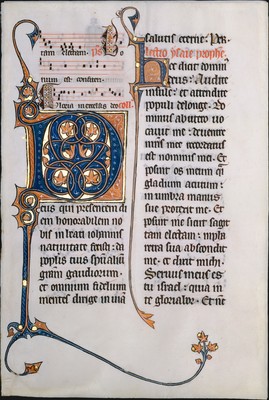 ram electam. ps Bo
num est confiteri.
Gloria in excelsis deo coll.
Deus qui presentem di
em honorabilem no
bis in beati iohannis
nativitate fecisti: da
populis tuis spualium
gram gaudiorum.
et omnium fidelium
mentes dirige in viam
salutis eterne. Per.
Lectio ysaie prophe.
Hec dicit dominus
deus: Audite
insule: et attendite
populi de longe. Do
minus ab utero vo
cavit me: de ventre
matris mee recordatus
est nominis mei. Et
posuit os meum qsi
gladium acutum:
in umbra manus
sue protexit me. Et
posuit me sicut sagit
tam electam: in pha
retra sua abscondit
me. et dixit michi:
Servus meus es
tu israel: quia in
te gloriabor. Et nunc